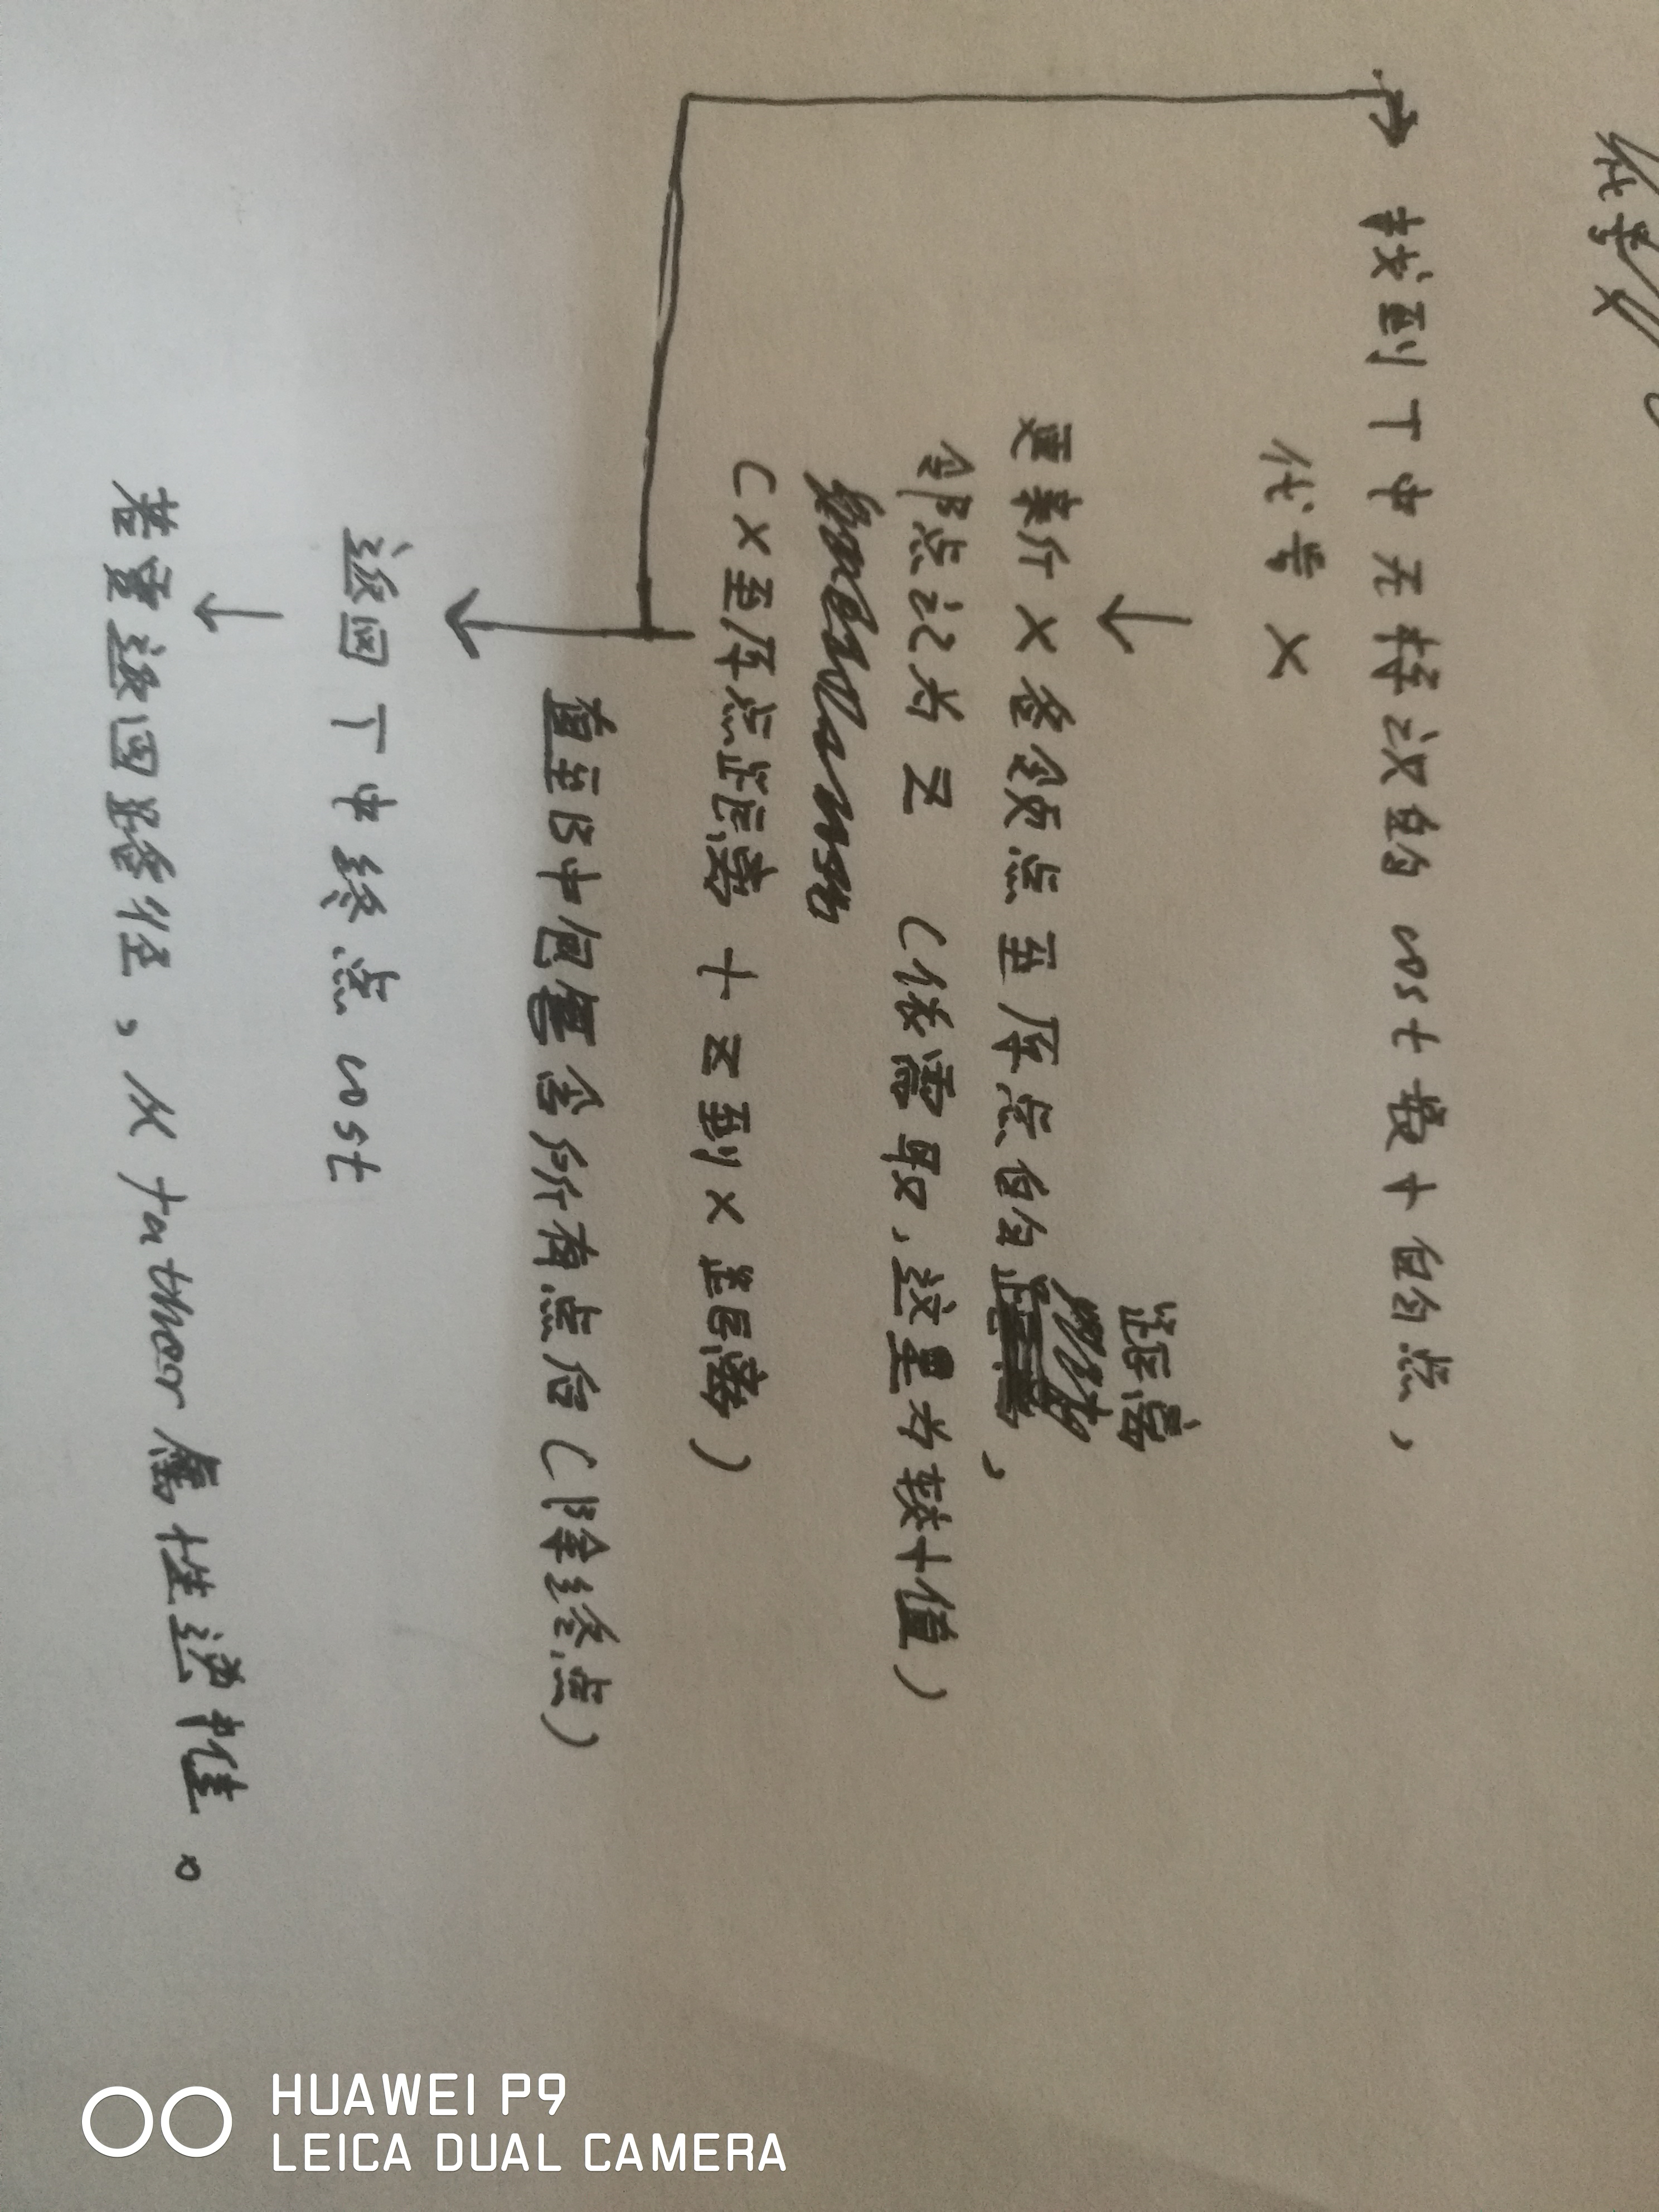 代号X
找到T中无标识的cost最小的点,
代号X
更新介X各邻点至原点的距离,
邻点记为Z (依需取,这里为较小值)
(X至原点距离+Z到X距离)
直至B中包含所有点后(除终点)
返回T中终点cost
若需返回路径,从father属性递推。
HUAWEI P9
LEICA DUAL CAMERA